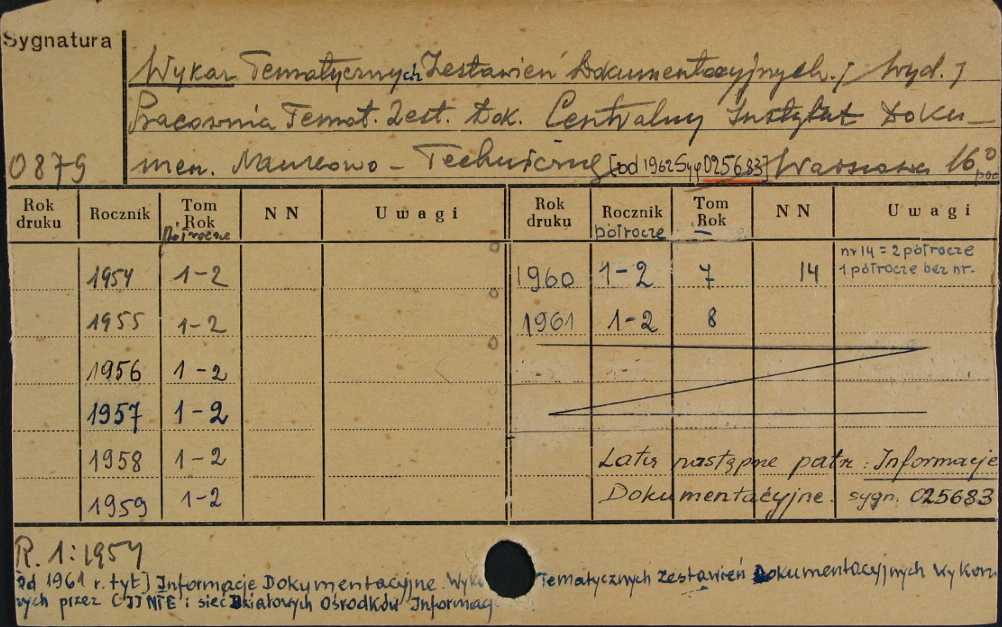 Sygnatura
Wykaz Tematycznych Zestawień Dokumentacyjnych. / Wyd. /
Pracownia Temat. Zest. Dok. Centralny Instytut Doku-
0879 men. Naukowo - Techniczne [od 1962 Syg 025683] Warszawa 16°
Rok druku Rocznik Tom Rok Półrocze NN Uwagi Rok druku Rocznik półrocze Tom Rok NN Uwagi
1954 1-2 1960 1-2 7 14 nr 14 = 2 półrocze
1 półrocze bez nr.
1955 1-2 1961 1-2 8
1956 1-2
1957 1-2
1958 1-2 Lata następne patrz: Informacje
1959 1-2 Dokumentacyjne. sygn. 025683
R. 1:1954
[od 1961 r. tyt] Informacje Dokumentacyjne. Tematycznych zestawień Dokumentacyjnych wykon
nych przez CIINTE i sieć Działowych Ośrodków